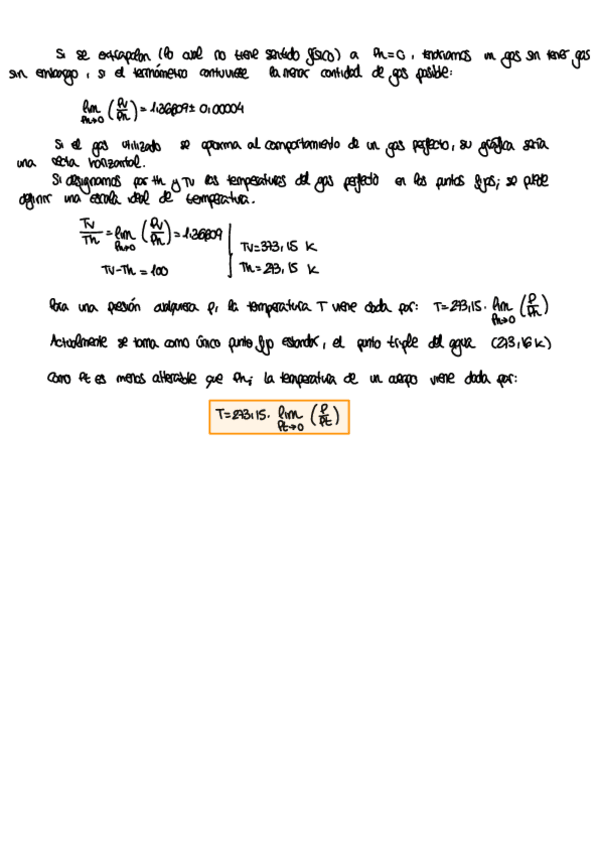 Si se extrapolan (lo cual no tiene sentido físico) a Ph=0, tendríamos un gas sin tener gas
sin embargo, si el termómetro contuviese la menor cantidad de gas posible:
lim Ph→0 (Pv/Ph) = 1,36809 ± 0,00004
Si el gas utilizado se aproxima al comportamiento de un gas perfecto, su gráfica sería
una recta horizontal.
Si designamos por Th y Tv las temperaturas del gas perfecto en los puntos fijos; se puede
definir una escala ideal de temperatura.
Tv/Th = lim Ph→0 (Pv/Ph) = 1,36809
Tv = 373,15 K
Tv-Th = 100
Th = 273,15 K
Para una presión cualquiera p, la temperatura T viene dada por: T=273,15 · lim Ph→0 (P/Ph)
Actualmente se toma como único punto fijo estándar, el punto triple del agua (273,16 K)
Como Pt es menos alterable que Ph; la temperatura de un cuerpo viene dada por:
T=273,15 · lim Pt→0 (P/Pt)